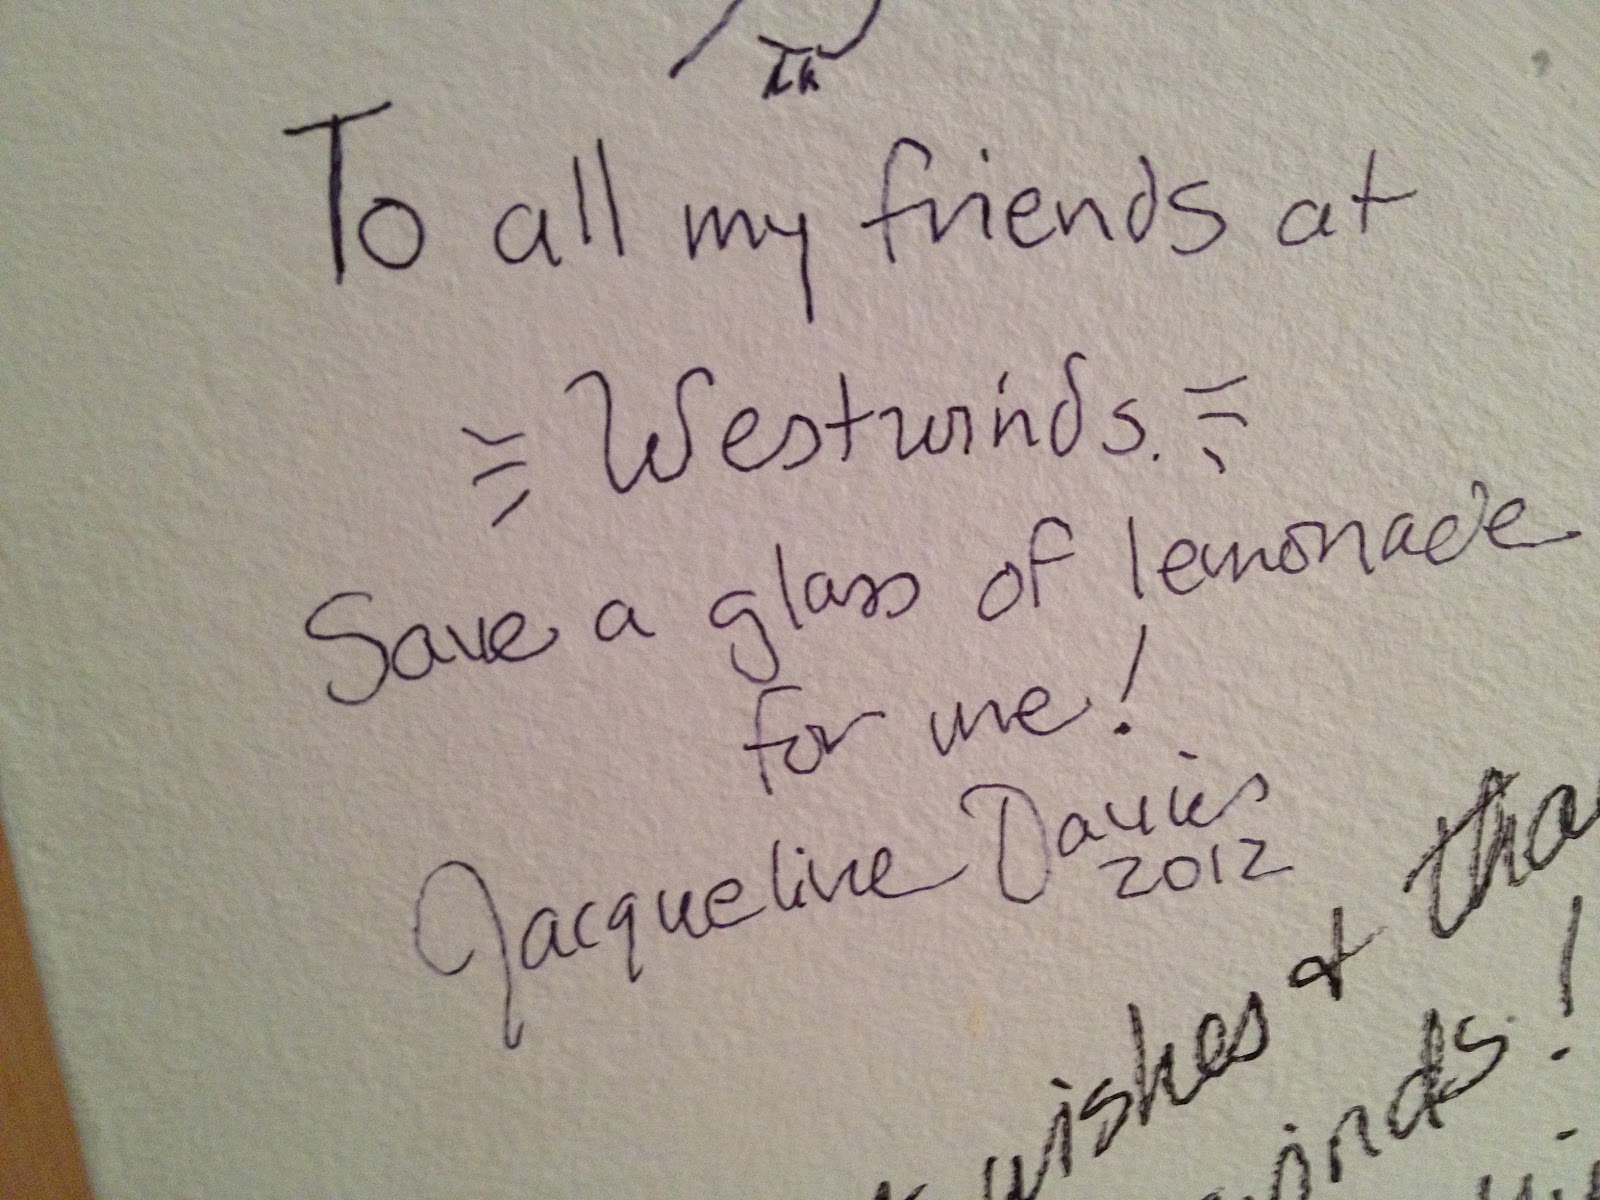 To all my friends at
Westwinds.
Save a glass of lemonade
for me!
Jacqueline Davies
2012
wishes &
winds!